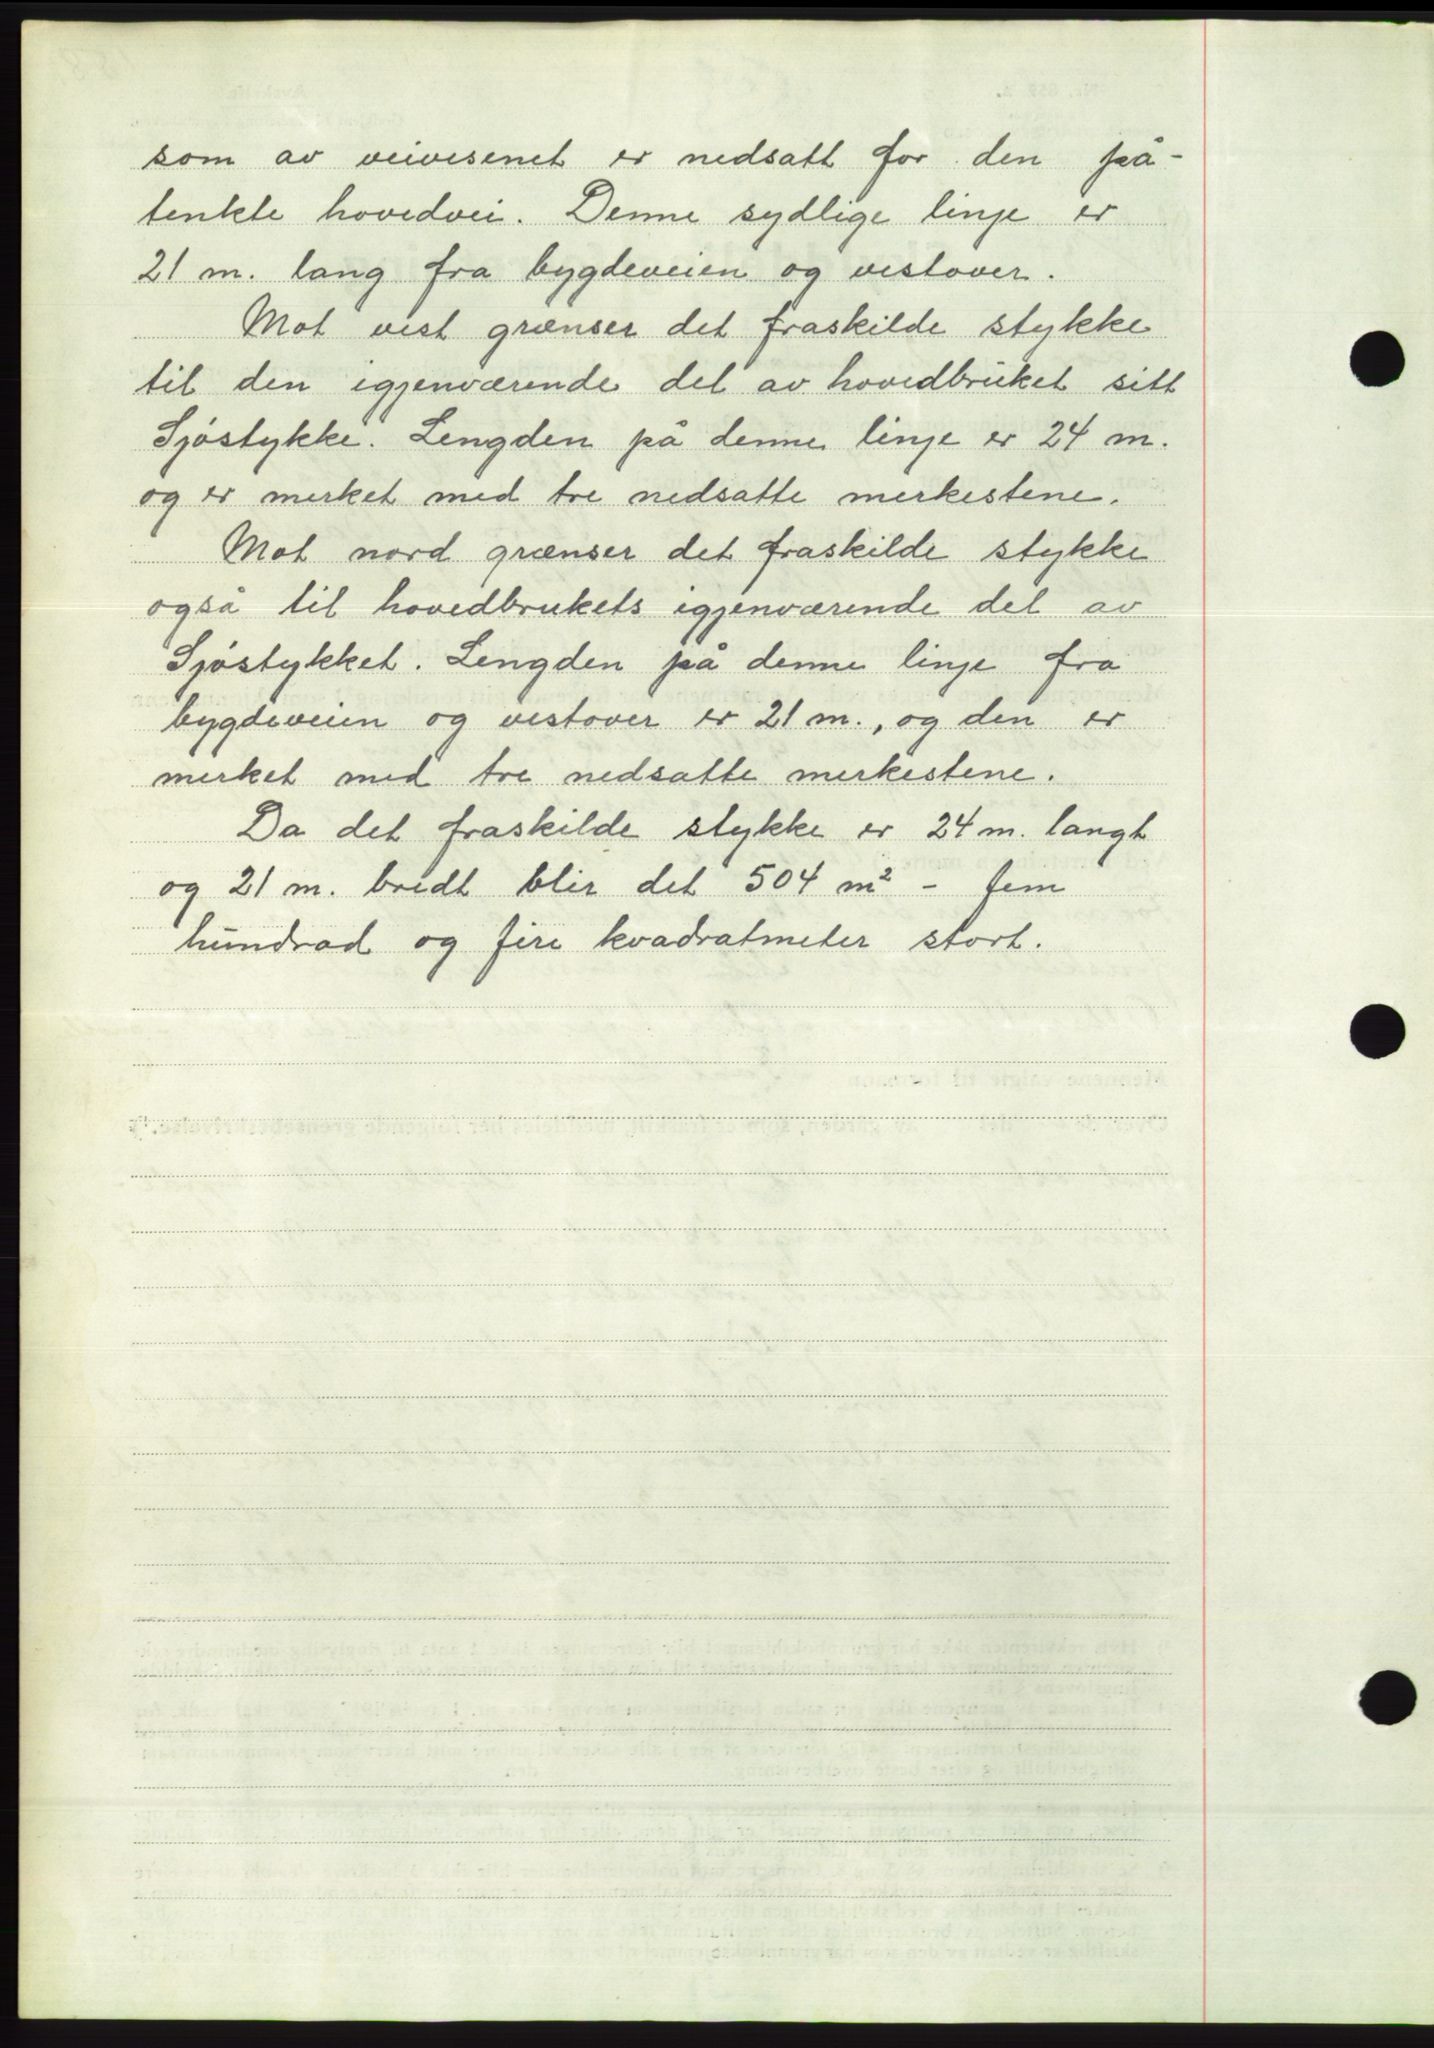 som av veivesenet er nedsatt for den på-
tenkte hovedvei. Denne sydlige linje er
21 m. lang fra bygdeveien og vestover.
Mot vest grænser det fraskilde stykke
til den igjenværende del av hovedbruket sitt
Sjøstykke. Lengden på denne linje er 24 m.
og er merket med tre nedsatte merkestene.
Mot nord grænser det fraskilde stykke
også til hovedbrukets igjenværende del av
Sjøstykket. Lengden på denne linje fra
bygdeveien og vestover er 21 m., og den er
merket med tre nedsatte merkestene.
Da det fraskilde stykke er 24 m. langt
og 21 m. bredt blir det 504 m² - fem
hundrad og fire kvadratmeter stort.